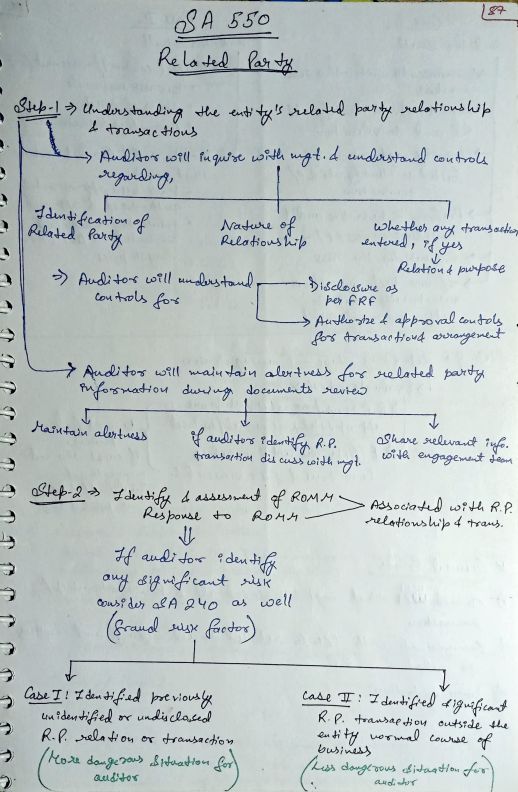 87
SA 550
Related Party
Step-1 ⇒ Understanding the entity's related party relationship
& transactions
→ Auditor will inquire with mgt. & understand controls
regarding,
Identification of
Related Party
Nature of
Relationship
Whether any transaction
entered, if yes
Relation & purpose
⇒ Auditor will understand
controls for
Disclosure as
per FRF
Authorize & approval controls
for transaction & arrangement
→ Auditor will maintain alertness for related party
information during documents review
Maintain alertness
if auditor identify R.P.
transaction discuss with mgt.
Share relevant info.
with engagement team
Step-2 ⇒ Identify & assessment of ROMM
Response to ROMM
Associated with R.P.
relationship & trans.
If auditor identify
any significant risk
consider SA 240 as well
(fraud risk factor)
Case I : Identified previously
unidentified or undisclosed
R.P. relation or transaction
(More dangerous situation for
auditor)
Case II : Identified significant
R.P. transaction outside the
entity normal course of
business
(Less dangerous situation for
auditor)